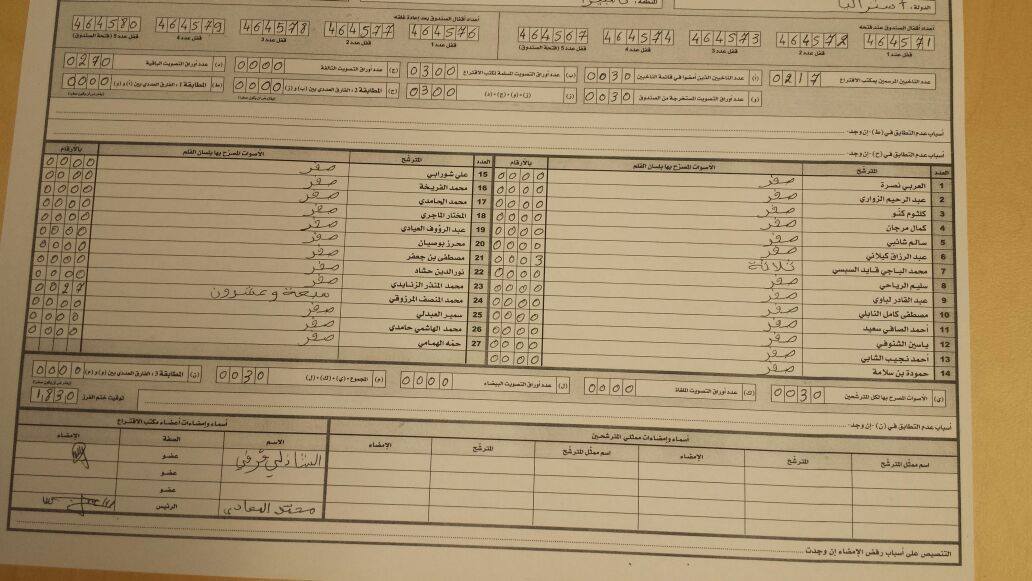 الدولة: أستراليا
أعداد أقفال الصندوق عند فتحه
464571 464572 464573 464574 464567
قفل عدد 1 قفل عدد 2 قفل عدد 3 قفل عدد 4 قفل عدد 5 (فتحة الصندوق)
أعداد أقفال الصندوق بعد إعادة غلقه
464576 464577 464578 464579 464580
قفل عدد 1 قفل عدد 2 قفل عدد 3 قفل عدد 4 قفل عدد 5 (فتحة الصندوق)
عدد الناخبين المرسمين بمكتب الاقتراع 0217
(أ) عدد الناخبين الذين أمضوا في قائمة الناخبين 0030
(ب) عدد أوراق التصويت المسلمة لمكتب الاقتراع 0300
(ج) عدد أوراق التصويت التالفة 0000
(د) عدد أوراق التصويت الباقية 0270
(و) عدد أوراق التصويت المستخرجة من الصندوق 0030
(ز) (و)+(ج)+(د) 0300
(ح) المطابقة 2: الفارق العددي بين (ب) و (ز) 0000
(ط) المطابقة 1: الفارق العددي بين (أ) و (و) 0000
أسباب عدم التطابق في (ط) -إن وجد-
أسباب عدم التطابق في (ح) -إن وجد-
العدد المترشح الأصوات المصرح بها بلسان القلم بالأرقام
1 العربي نصرة صفر 0000
2 عبد الرحيم الزواري صفر 0000
3 كلثوم كنّو صفر 0000
4 كمال مرجان صفر 0000
5 سالم شائبي صفر 0000
6 عبد الرزاق كيلاني صفر 0000
7 محمد الباجي قايد السبسي ثلاثة 0003
8 سليم الرياحي صفر 0000
9 عبد القادر لباوي صفر 0000
10 مصطفى كامل النابلي صفر 0000
11 أحمد الصافي سعيد صفر 0000
12 ياسين الشنوفي صفر 0000
13 أحمد نجيب الشابي صفر 0000
14 حمودة بن سلامة صفر 0000
العدد المترشح الأصوات المصرح بها بلسان القلم بالأرقام
15 علي شورابي صفر 0000
16 محمد الفريخة صفر 0000
17 محمد الحامدي صفر 0000
18 المختار الماجري صفر 0000
19 عبد الرؤوف العيادي صفر 0000
20 محرز بوصيان صفر 0000
21 مصطفى بن جعفر صفر 0000
22 نورالدين حشاد صفر 0000
23 محمد المنذر الزنايدي صفر 0000
24 محمد المنصف المرزوقي سبعة وعشرون 0027
25 سمير العبدلي صفر 0000
26 محمد الهاشمي حامدي صفر 0000
27 حمّه الهمامي صفر 0000
(ي) الأصوات المصرح بها لكل المترشحين 0030
(ك) عدد أوراق التصويت الملغاة 0000
(ل) عدد أوراق التصويت البيضاء 0000
(م) المجموع = (ي)+(ك)+(ل) 0030
(ن) المطابقة 3: الفارق العددي بين (و) و (م) 0000
أسباب عدم التطابق في (ن) -إن وجد-
توقيت ختم الفرز 1830
أسماء وإمضاءات ممثلي المترشحين
اسم ممثل المترشح المترشح الإمضاء اسم ممثل المترشح المترشح الإمضاء
أسماء وإمضاءات أعضاء مكتب الاقتراع
الاسم الصفة الإمضاء
الشاذلي عضو
عضو
عضو
محمد الرئيس
التنصيص على أسباب رفض الإمضاء إن وجدت